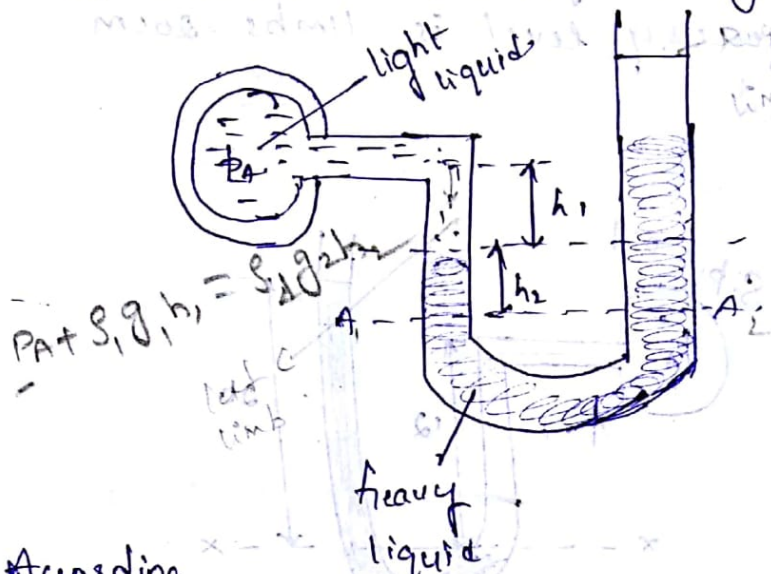 light
liquid
PA
h₁
h₂
PA + S₁g₁h₁ = S₂g₂h₂
A₁
A₂
left
limb
heavy
liquid
According